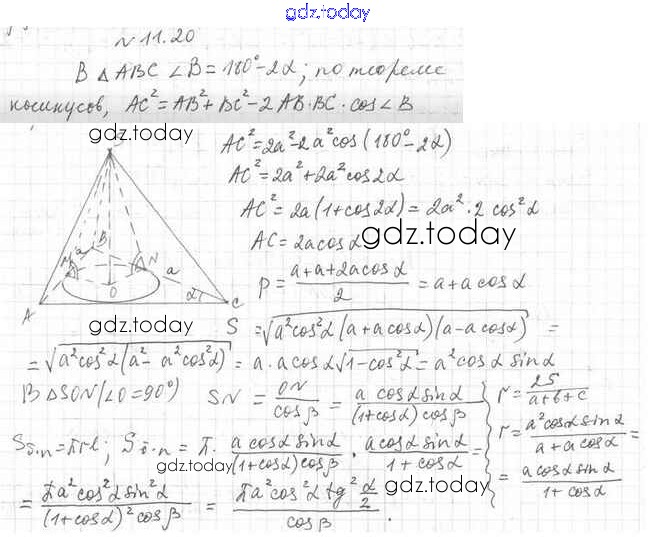 gdz.today
№ 11.20
В △ ABC ∠B = 180° - 2α; по теореме
косинусов, AC² = AB² + BC² - 2 AB·BC · cos∠B
gdz.today
AC² = 2a² - 2a² cos(180° - 2α)
AC² = 2a² + 2a² cos 2α
AC² = 2a(1 + cos 2α) = 2a² · 2 cos² α
AC = 2a cos α
gdz.today
P = (a + a + 2a cos α)/2 = a + a cos α
M B N a a α O A C
gdz.today
S = √(a² cos² α (a + a cos α)(a - a cos α)) =
= √(a² cos² α (a² - a² cos² α)) = a · a cos α √(1 - cos² α) = a² cos α sin α
В △ SON (∠O = 90°) SN = ON/cos β = a cos α sin α/((1 + cos α) cos β)
r = 2S/(a + b + c)
r = a² cos α sin α/(a + a cos α) =
= a cos α sin α/(1 + cos α)
Sб.п = πrl; Sб.п = π · a cos α sin α/((1 + cos α) cos β) · a cos α sin α/(1 + cos α) =
gdz.today
= πa² cos² α sin² α/((1 + cos α)² cos β) = πa² cos² α tg² α/2 / cos β.
gdz.today